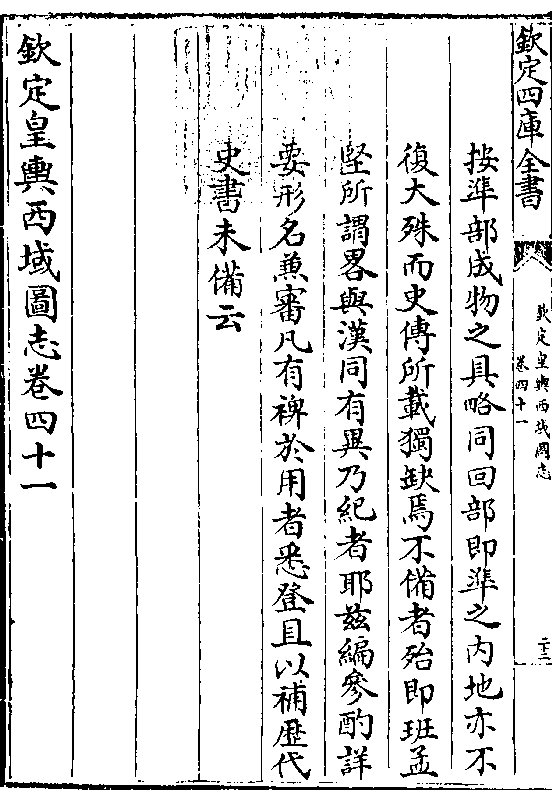 欽定四庫全書
欽定皇輿西域圖志
卷四十一
二十三
按準部成物之具略同回部即準之內地亦不
復大殊而史傳所載獨缺焉不備者殆即班孟
堅所謂畧與漢同有異乃紀者耶玆編參酌詳
要形名兼審凡有裨於用者悉登且以補歷代
史書未備云
欽定皇輿西域圖志卷四十一